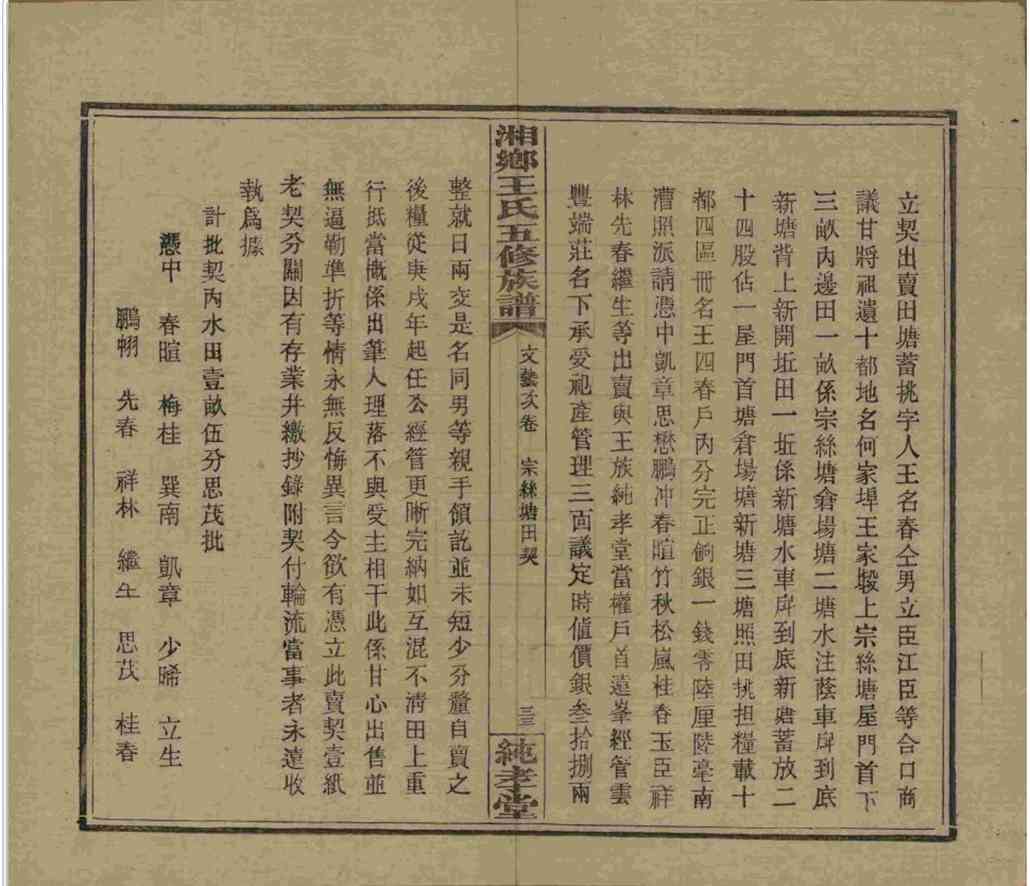 立契出賣田塘蓄挑字人王名春仝男立臣江臣等合口商
議甘將祖遺十都地名何家埠王家塅上宗絲塘屋門首下
三畝內邊田一畝係宗絲塘倉場塘二塘水注蔭車戽到底
新塘背上新開坵田一坵係新塘水車戽到底新塘蓄放二
十四股佔一屋門首塘倉場塘新塘三塘照田挑担糧載十
都四區冊名王四春戶內分完正餉銀一錢零陸厘陸毫南
漕照派請憑中凱章思懋鵬沖春暄竹秋松嵐桂春玉臣祥
林先春繼生等出賣與王族純孝堂當權戶首遠峯經管雲
豐端莊名下承受祀產管理三面議定時值價銀叁拾捌兩
湘鄉王氏五修族譜
文藝次卷 宗絲塘田契
三三
純孝堂
整就日兩交是名同男等親手領訖並未短少分釐自賣之
後糧從庚戌年起任公經管更晰完納如互混不清田上重
行抵當慨係出筆人理落不與受主相干此係甘心出售並
無逼勒準折等情永無反悔異言今欲有憑立此賣契壹紙
老契分關因有存業并繳抄錄附契付輪流當事者永遠收
執爲據
計批契內水田壹畝伍分思茂批
憑中 春暄 梅桂 巽南 凱章 少晞 立生
鵬翀 先春 祥林 繼生 思茂 桂春